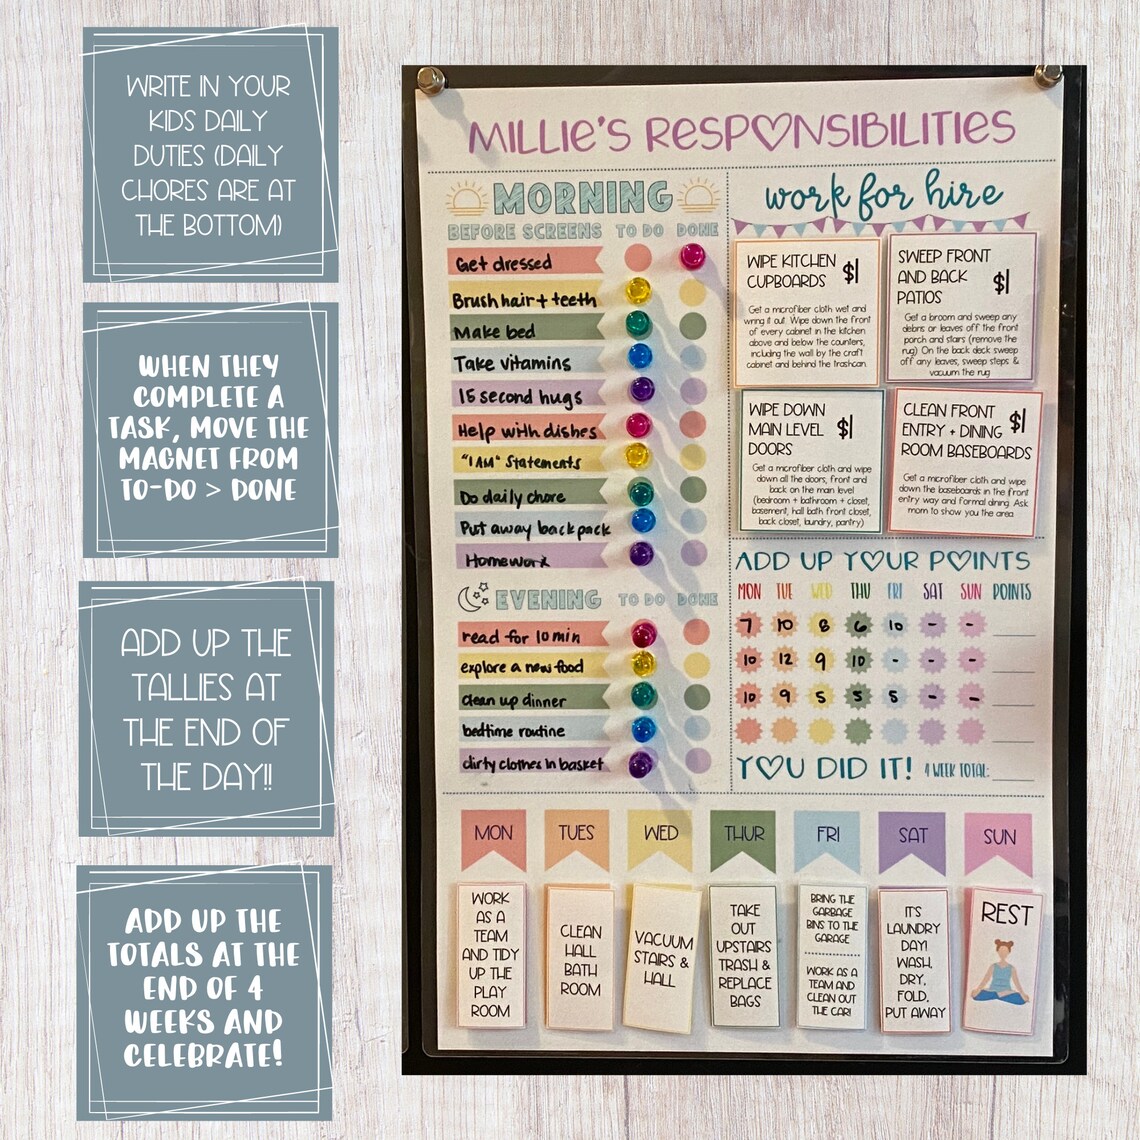 WRITE IN YOUR
KIDS DAILY
DUTIES (DAILY
CHORES ARE AT
THE BOTTOM)
WHEN THEY
COMPLETE A
TASK, MOVE THE
MAGNET FROM
TO-DO > DONE
ADD UP THE
TALLIES AT
THE END OF
THE DAY!!
ADD UP THE
TOTALS AT THE
END OF 4
WEEKS AND
CELEBRATE!
MILLIE'S RESPONSIBILITIES
MORNING
BEFORE SCREENS TO DO DONE
Get dressed
Brush hair + teeth
Make bed
Take vitamins
15 second hugs
Help with dishes
"I AM" Statements
Do daily chore
Put away backpack
Homework
EVENING TO DO DONE
read for 10 min
explore a new food
clean up dinner
bedtime routine
dirty clothes in basket
work for hire
WIPE KITCHEN
CUPBOARDS $1
Get a microfiber cloth wet and
wring it out. Wipe down the front
of every cabinet in the kitchen
above and below the counters,
including the wall by the craft
cabinet and behind the trashcan.
SWEEP FRONT
AND BACK
PATIOS $1
Get a broom and sweep any
debris or leaves off the front
porch and stairs (remove the
rug) On the back deck sweep
off any leaves, sweep steps &
vacuum the rug
WIPE DOWN
MAIN LEVEL
DOORS $1
Get a microfiber cloth and wipe
down all the doors, front and
back on the main level
(bedroom + bathroom + closet,
basement, hall bath front closet,
back closet, laundry, pantry)
CLEAN FRONT
ENTRY + DINING
ROOM BASEBOARDS $1
Get a microfiber cloth and wipe
down the baseboards in the front
entry way and formal dining. Ask
mom to show you the area
ADD UP YOUR POINTS
MON TUE WED THU FRI SAT SUN POINTS
7 10 8 6 10 - -
10 12 9 10 - - -
10 9 5 5 5 - -
YOU DID IT! 4 WEEK TOTAL:
MON TUES WED THUR FRI SAT SUN
WORK
AS A
TEAM
AND TIDY
UP THE
PLAY
ROOM
CLEAN
HALL
BATH
ROOM
VACUUM
STAIRS &
HALL
TAKE
OUT
UPSTAIRS
TRASH &
REPLACE
BAGS
BRING THE
GARBAGE
BINS TO THE
GARAGE
WORK AS A
TEAM AND
CLEAN OUT
THE CAR!
IT'S
LAUNDRY
DAY!
WASH,
DRY,
FOLD,
PUT AWAY
REST